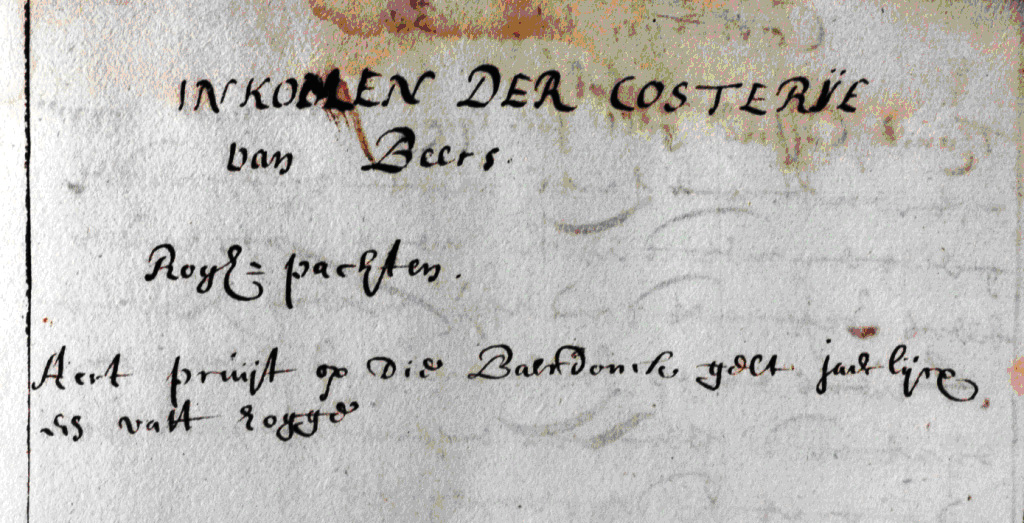 INKOMEN DER COSTERIJE
van Beers.
Rogh= pachten.
Aert pruijst op die Baerdonck gelt jaerlijcx
vatt rogge